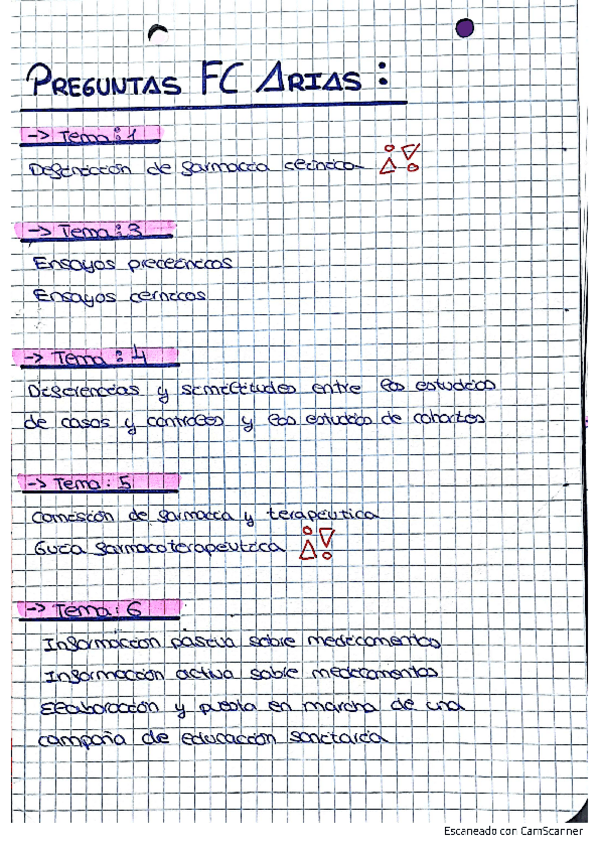 PREGUNTAS FC ARIAS:
-> Tema: 1
Definición de farmacia clínica
-> Tema: 3
Ensayos preclínicos
Ensayos clínicos
-> Tema: 4
Diferencias y similitudes entre los estudios
de casos y controles y los estudios de cohortes
-> Tema: 5
Comisión de farmacia y terapéutica
Guía farmacoterapéutica
-> Tema: 6
Información pasiva sobre medicamentos
Información activa sobre medicamentos
Elaboración y puesta en marcha de una
campaña de educación sanitaria
Escaneado con CamScanner